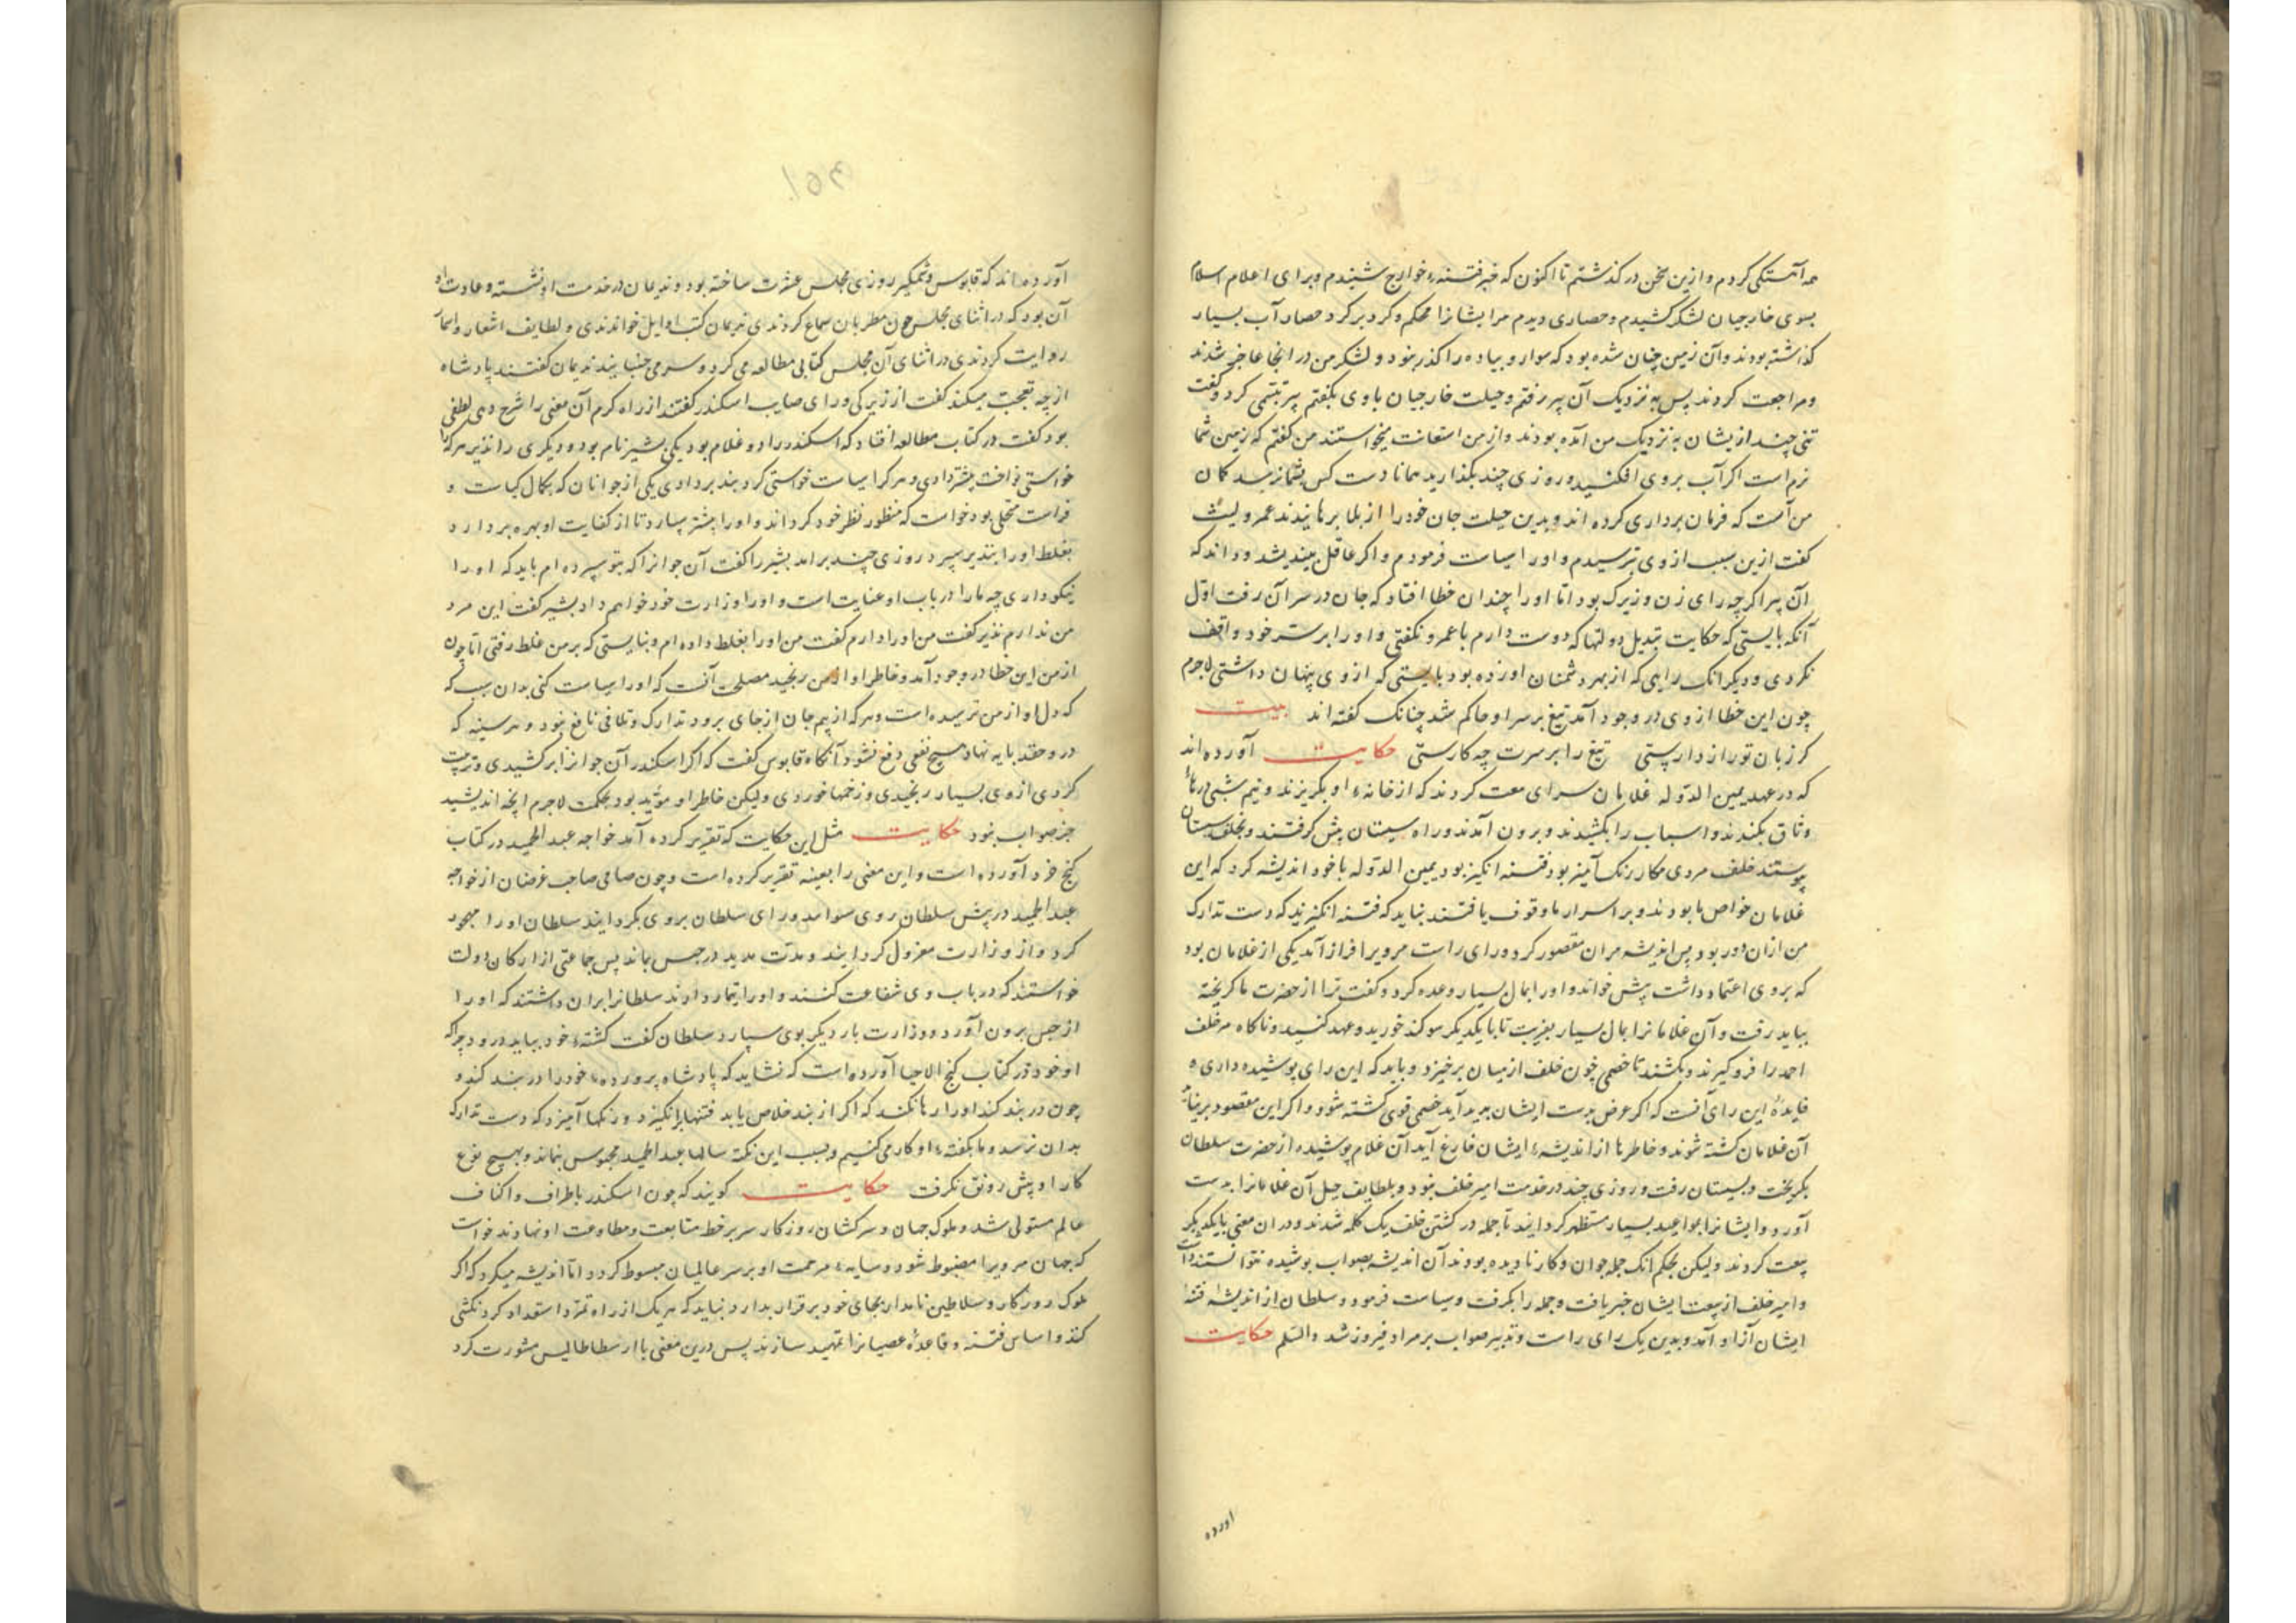 همه آهستگی کردم و ازین سخن در گذشتم تا اکنون که خبر فتنهٔ خوارج شنیدم و برای اعلام اسلام
بسوی خارجیان لشکر کشیدم و حصاری دیدم مر ایشانرا محکم و گرد بر گرد حصار آب بسیار
گذاشته بودند و آن زمین چنان شده بود که سوار و پیاده را گذر نبود و لشکر من در انجا عاجز شدند
و مراجعت کردند پس به نزدیک آن پیر رفتم و حیلت خارجیان با وی بگفتم پیر تبسّمی کرد و گفت
تنی چند از یشان به نزدیک من آمده بودند و از من استعانت میخواستند من گفتم که زمین شما
نرم است اگر آب بر وی افکنید و روزی چند بگذارید همانا دست کس بشما نرسد گمان
من آنست که فرمان برداری کرده اند و بدین حیلت جان خود را از بلا برهانیدند عمرو لیث
گفت ازین سبب از وی بترسیدم و او را سیاست فرمودم و اگر عاقل بیندیشد و داند که
آن پیر اگرچه رای زن و زیرک بود امّا او را چندان خطا افتاد که جان در سر آن رفت اوّل
آنکه بایستی که حکایت تبدیل دولتها که دوست دارم با عمرو نگفتی و او را بر سر خود واقف
نکردی و دیگر انک رایی که از بهر دشمنان او زده بود بایستی که از وی پنهان داشتی لاجرم
چون این خطا از وی در وجود آمد تیغ بر سر او حاکم شد چنانک گفته اند بیت
گر زبان تو راز دارستی تیغ را بر سرت چه کارستی حکایت آورده اند
که در عهد یمین الدّوله غلامان سرای بیعت کردند که از خانهٔ او بگریزند و نیم شبی درهاء
وثاق بکندند و اسباب را بکشیدند و برون آمدند و راه سیستان پیش گرفتند و بخلف سیستان
پیوستند خلف مردی مکار رنگ آمیز بود فتنه انگیز بود یمین الدّوله با خود اندیشه کرد که این
غلامان خواص ما بودند و بر اسرار ما وقوف یافتند نباید که فتنه انگیزند که دست تدارک
من ازان دور بود پس اندیشه مران مقصور کرد و رای راست مرو یرا فراز آمد یکی از غلامان بود
که بر وی اعتماد داشت پیش خواند و او را بمال بسیار وعده کرد و گفت ترا از حضرت ما گریخته
بباید رفت و آن غلامانرا بمال بسیار بفریبت تا با یکدیگر سوگند خورید و عهد کنید و ناگاه مر خلف
احمد را فرو گیرند و بکشند تا خصمی چون خلف از میان برخیزد و باید که این رای پوشیده داری ه
فایدهٔ این رای آنست که اگر غرض بدست ایشان پدید آید خصمی قوی کشته شود و اگر این مقصود بر نیاید
آن غلامان کشته شوند و خاطرها از اندیشهٔ ایشان فارغ آید آن غلام پوشیده از حضرت سلطان
بگریخت و بسیستان رفت و روزی چند در خدمت امیر خلف نبود و بلطایف حیل آن غلامانرا بدست
آورد و ایشانرا بمواعید بسیار مستظهر گردانید تا جمله در کشتن خلف یک کلمه شدند و دران معنی با یکدیگر
بیعت کردند ولیکن بحکم انک جمله جوان و کار نادیده بودند آن اندیشه بصواب پوشیده نتوانستند داشت
و امیر خلف از بیعت ایشان خبر یافت و جمله را بگرفت و سیاست فرمود و سلطان از اندیشهٔ فتنه
ایشان آزاد آمد و بدین یک رای راست و تدبیر صواب بر مراد فیروز شد والسّلم حکایت
اورده
آورده اند که قابوس وشمگیر روزی مجلس عشرت ساخته بود و ندیمان در خدمت او نشسته و عادت او
آن بود که در اثنای مجلس چون مطربان سماع کردندی ندیمان کتب اوایل خواندندی و لطایف اشعار و اسمار
روایت کردندی در اثنای آن مجلس کتابی مطالعه می کرد و سر می جنبانید ندیمان گفتند پادشاه
از چه تعجب میکند گفت از زیرکی و رای صایب اسکندر گفتند از راه کرم آن معنی را شرح دهی لطفی
بود گفت در کتاب مطالعه افتاد که اسکندر را دو غلام بود یکی بشیر نام بود و دیگری را نذیر هر کرا
خواستی نواخت ببشیر دادی و هر کرا سیاست خواستی کرد بنذیر دادی یکی از جوانان که بکمال کیاست و
فراست متحلی بود خواست که منظور نظر خود گرداند و او را ببشیر سپارد تا از کفایت او بهره بردارد
بغلط او را بنذیر سپرد روزی چند براند بشیر را گفت آن جوانرا که بتو سپرده ام باید که او را
نیکو داری چه ما را در باب او عنایت است و او را وزارت خود خواهم داد بشیر گفت این مرد
من ندارم نذیر گفت من او را دارم گفت من او را بغلط داده ام و نبایستی که بر من غلط رفتی امّا چون
از من این خطا در وجود آمد و خاطر او از من رنجید مصلحت آنست که او را سیاست کنی بدان سبب که
که دل او از من ترسیده است و هر که از بیم جان از جای برود تدارک و تلافی نافع نبود و هر سینه که
در و حقد پایه نهاد بهیچ نفعی دفع نشود آنگاه قابوس گفت که اگر اسکندر آن جوانرا بر کشیدی و تربیت
کردی از وی بسیار رنجیدی و زخمها خوردی ولیکن خاطر او مؤید بود بحکمت لاجرم آنچه اندیشید
جز صواب نبود حکایت مثل این حکایت که تقریر کرده آمد خواجه عبد الحمید در کتاب
گنج خرد آورده است و این معنی را بعینه تقریر کرده است و چون صاحب غرضان از خواجه
عبد الحمید در پیش سلطان روی سلطان بر وی بگردانید سلطان او را مهجور
کرد و از وزارت معزول گردانید و مدّت مدید در حبس بماند پس جماعتی از ارکان دولت
خواستند که در باب وی شفاعت کنند و او را تیمار دارند سلطانرا بران داشتند که او را
از حبس برون آورد و وزارت بار دیگر بوی سپارد سلطان گفت کشتهٔ خود بباید درود چرا که
او خود در کتاب گنج الاحیا آورده است که نشاید که پادشاه پروردهٔ خود را در بند کند و
چون در بند کند او را رها نکند که اگر از بند خلاص یابد فتنها بر انگیزد و رنگها آمیزد که دست تدارک
بدان نرسد و ما بگفتهٔ او کار می کنیم و بسبب این نکته سالها عبد الحمید محبوس بماند و بهیچ نوع
کار او پیش رونق نگرفت حکایت گویند که چون اسکندر باطراف و اکناف
عالم مستولی شد و ملوک جهان و سرکشان روزگار سر بر خط متابعت و مطاوعت او نهادند خواست
که جهان مرو یرا مضبوط شود و سایهٔ مرحمت او بر سر عالمیان مبسوط گردد امّا اندیشه میکرد که اگر
ملوک روزگار و سلاطین نامدار بجای خود برقرار بدارد نباید که هر یک از راه تمرّد استعداد گردنکشی
کنند و اساس فتنه و قاعدهٔ عصیانرا تمهید سازند پس درین معنی با ارسطاطالیس مشورت کرد